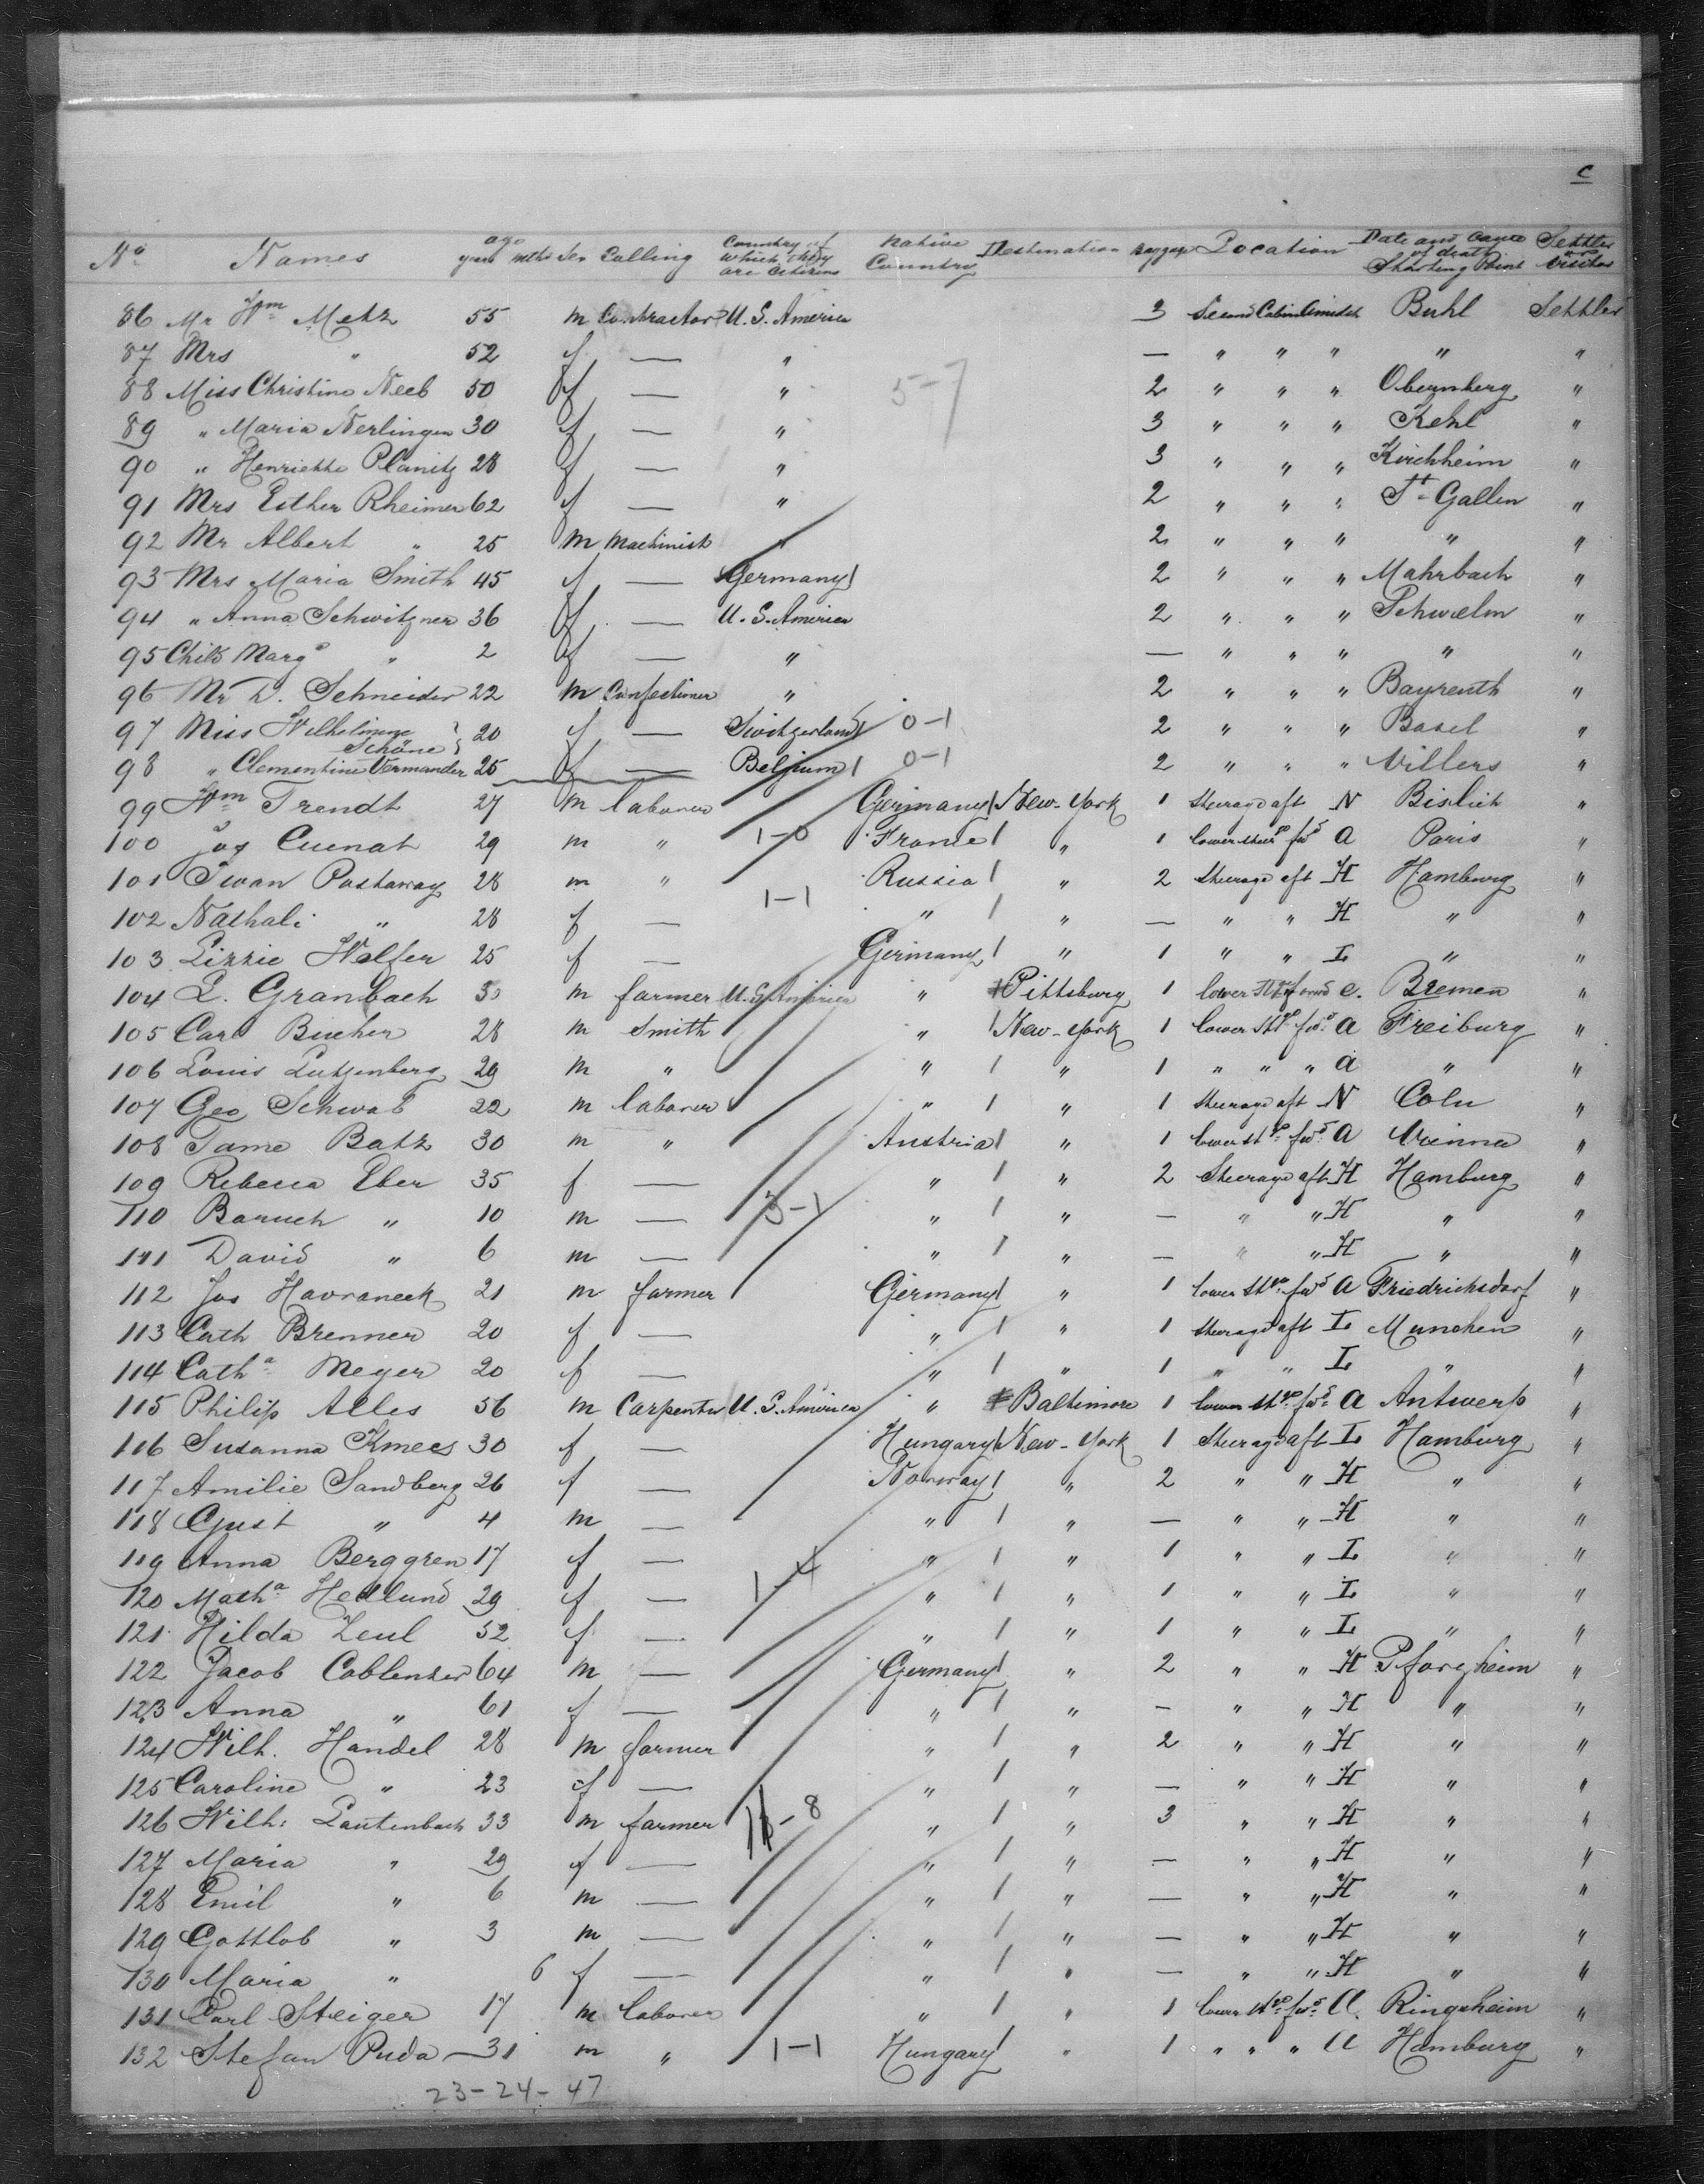 c
No. Names age years mths Sex Calling Country of which they are Citizens Native Country Destination Baggage Location Date and Cause of death Starting Point Settler or Visitor
86 Mr Wm Metz 55 m Contractor U.S. America 3 Second Cabin Amidsh Buhl Settler
87 Mrs " 52 f — " — " " " " "
88 Miss Christine Neeb 50 f — " 2 " " " "
89 " Maria Nerlinger 30 f — " 3 " " " Kehl "
90 " Henriette Planitz 28 f — " 3 " " " Kirchheim "
91 Mrs Esther Rheimer 62 f — " 2 " " " St. Gallen "
92 Mr Albert " 25 m Machinist " 2 " " " " "
93 Mrs Maria Smith 45 f — Germany 1 2 " " " Mahrbach "
94 " Anna Schwitzner 36 f — U.S. America 2 " " " Schwelm "
95 Child Marga " 2 f — " — " " " " "
96 Mr D. Schneider 22 m Confectioner " 2 " " " Bayreuth "
97 Miss Wilhelmine Schöne 20 f — Switzerland 1 0-1 2 " " " Basel "
98 " Clementine Vermander 25 f — Belgium 1 0-1 2 " " " Villers "
99 Wm Trendt 27 m laborer Germany 1 New-York 1 Steerage aft N Bislich "
100 Jos Cuenat 29 m " 1-0 France 1 " 1 lower steerge fwd A Paris "
101 Iwan Postaway 28 m " Russia 1 " 2 Steerage aft H Hamburg "
1-1
102 Nathali " 28 f — " 1 " — " " H " "
103 Lizzie Walfer 25 f — Germany 1 " 1 " " L " "
104 L. Granbach 30 m farmer U.S. America " Pittsburg 1 lower fwd C. Bremen "
105 Carl Bucher 28 m Smith " 1 New-York 1 lower stge fwd A Freiburg "
106 Louis Lutzenberg 29 m " " 1 " 1 " " " A " "
107 Geo Schwab 22 m laborer " 1 " 1 Steerage aft N Coln "
108 Tame Batz 30 m " Austria 1 " 1 lower stge fwd A Vienna "
109 Rebecca Eber 35 f — " 1 " 2 Steerage aft H Hamburg "
110 Baruch " 10 m — 3-1 " 1 " — " " H " "
111 David " 6 m — " 1 " — " " H " "
112 Jos Havraneck 21 m farmer Germany 1 " 1 lower stge fwd A Friedrichsdorf "
113 Cath Brenner 20 f — " 1 " 1 Steerage aft L Munchen "
114 Catha Meyer 20 f — " 1 " 1 " " L " "
115 Philip Alles 56 m Carpenter U.S. America " Baltimore 1 lower stge fwd A Antwerp "
116 Susanna Kmecs 30 f — Hungary 1 New-York 1 Steerage aft L Hamburg "
117 Amilie Sandberg 26 f — Norway 1 " 2 " " H " "
118 Gust " 4 m — " 1 " — " " H " "
119 Anna Berggren 17 f — " 1 " 1 " " L " "
120 Matha Hedlund 29 f — 1-4 " 1 " 1 " " L " "
121 Hilda Zeul 52 f — " 1 " 1 " " L " "
122 Jacob Coblenzer 64 m — Germany 1 " 2 " " H Pforzheim "
123 Anna " 61 f — " 1 " — " " H " "
124 Wilh. Handel 28 m farmer " 1 " 2 " " H " "
125 Caroline " 23 f — " 1 " — " " H " "
126 Wilh. Lautenbach 33 m farmer " 1 " 3 " " H " "
127 Maria " 29 f — " 1 " — " " H " "
128 Emil " 6 m — " 1 " — " " H " "
129 Gottlob " 3 m — " 1 " — " " H " "
130 Maria " 6 f — " 1 " — " " H " "
131 Carl Steiger 17 m laborer " 1 " 1 lower stge fwd A. Ringsheim "
132 Stefan Puda — 31 m " 1-1 Hungary 1 " 1 " " " A Hamburg "
23-24-47